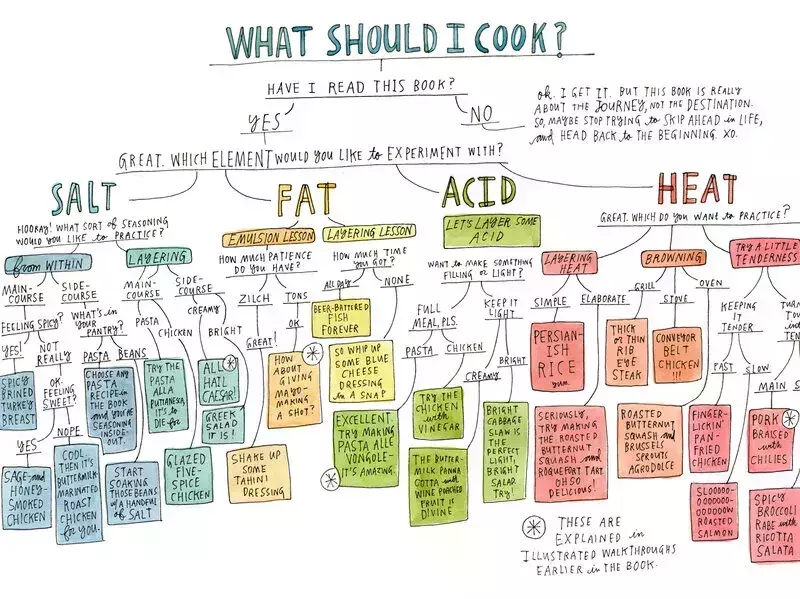 WHAT SHOULD I COOK?
HAVE I READ THIS BOOK?
YES
NO
ok. I GET IT. BUT THIS BOOK IS REALLY
ABOUT THE JOURNEY, NOT THE DESTINATION.
SO, MAYBE STOP TRYING to SKIP AHEAD in LIFE,
and HEAD BACK to THE BEGINNING. XO.
GREAT. WHICH ELEMENT WOULD YOU LIKE to EXPERIMENT WITH?
SALT
HOORAY! WHAT SORT of SEASONING
WOULD YOU LIKE to PRACTICE?
from WITHIN
MAIN-
COURSE
FEELING SPICY?
YES!
SPICY
BRINED
TURKEY
BREAST
NOT
REALLY
OK.
FEELING
SWEET?
YES
SAGE-and
HONEY-
SMOKED
CHICKEN
NOPE
COOL
THEN IT'S
BUTTERMILK
MARINATED
ROAST
CHICKEN
for YOU.
SIDE-
COURSE
WHAT'S in
YOUR
PANTRY?
PASTA
CHOOSE ANY
PASTA
RECIPE in
THE BOOK
and YOU'RE
SEASONING
INSIDE-
OUT.
BEANS
START
SOAKING
THOSE BEANS
w/ A HANDFUL
of SALT
LAYERING
MAIN-
COURSE
PASTA
TRY THE
PASTA
ALLA
PUTTANESA,
IT'S to
DIE for
CHICKEN
GLAZED
FIVE-
SPICE
CHICKEN
SIDE-
COURSE
CREAMY
ALL
HAIL
CAESAR!
BRIGHT
GREEK
SALAD
IT IS!
FAT
EMULSION LESSON
HOW MUCH PATIENCE
DO YOU HAVE?
ZILCH
GREAT!
SHAKE UP
SOME
TAHINI
DRESSING
TONS
OK
HOW
ABOUT
GIVING
MAYO-
MAKING
A SHOT?
LAYERING LESSON
HOW MUCH TIME
YOU GOT?
ALL DAY
BEER-BATTERED
FISH
FOREVER
NONE
SO WHIP UP
SOME BLUE
CHEESE
DRESSING
in A SNAP
ACID
LET'S LAYER SOME
ACID
WANT to MAKE SOMETHING
FILLING or LIGHT?
FULL
MEAL, PLS.
PASTA
EXCELLENT
TRY MAKING
PASTA ALLE
VONGOLE-
IT'S AMAZING.
CHICKEN
TRY THE
CHICKEN
with
VINEGAR
KEEP IT
LIGHT
CREAMY
THE BUTTER-
MILK PANNA
COTTA with
WINE POACHED
FRUIT is
DIVINE
BRIGHT
BRIGHT
CABBAGE
SLAW IS
THE
PERFECT
LIGHT,
BRIGHT
SALAD.
TRY!
HEAT
GREAT. WHICH DO YOU WANT to PRACTICE?
LAYERING
HEAT
SIMPLE
PERSIAN-
ISH
RICE
yum.
ELABORATE
SERIOUSLY,
TRY MAKING
THE ROASTED
BUTTERNUT
SQUASH and
ROQUEFORT TART
OH SO
DELICIOUS!
BROWNING
GRILL
THICK
or THIN
RIB
EYE
STEAK
STOVE
CONVEYOR
BELT
CHICKEN
!!!
OVEN
ROASTED
BUTTERNUT
SQUASH and
BRUSSELS
SPROUTS
AGRODOLCE
TRY A LITTLE
TENDERNESS
KEEPING
IT
TENDER
FAST
FINGER-
LICKIN'
PAN-
FRIED
CHICKEN
SLOW
SLOOOOO-
OOOOOOO-
OOOOOOW
ROASTED
SALMON
MAIN
PORK
BRAISED
with
CHILIES
SPICY
BROCCOLI
RABE with
RICOTTA
SALATA
THESE ARE
EXPLAINED in
ILLUSTRATED WALKTHROUGHS
EARLIER in the BOOK.